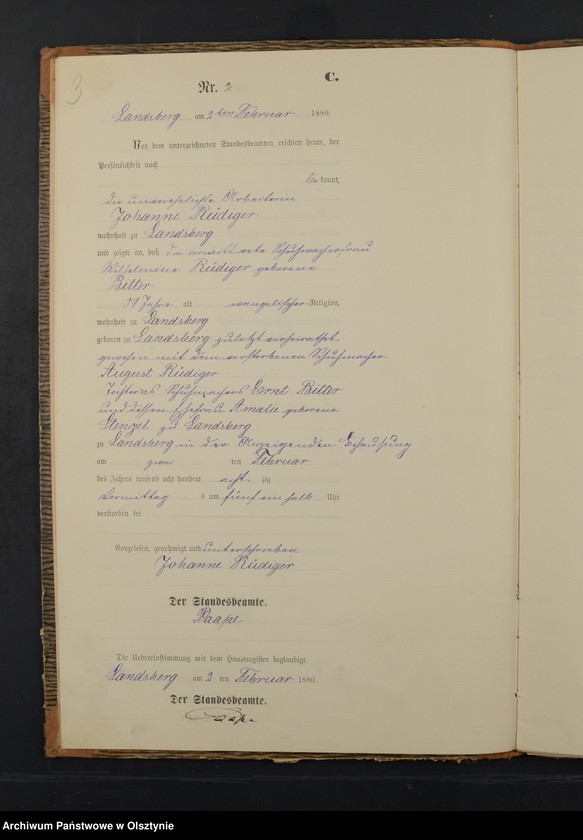 3
C.
Nr. 2
Landsberg am 2ten Februar 1880.
Vor dem unterzeichneten Standesbeamten erschien heute, der
Persönlichkeit nach
kannt,
die unverehelichte Arbeiterin
Johanne Rüdiger
wohnhaft zu Landsberg
und zeigte an, daß die verwittwete Schuhmacherfrau
Wilhelmine Rüdiger geborene
Bitter
Jahre alt evangelischer Religion,
wohnhaft zu Landsberg
geboren zu Landsberg zuletzt verheirathet
gewesen mit dem verstorbenen Schuhmacher
August Rüdiger
Tochter des Schuhmachers Ernt Bitter
und dessen Ehefrau Amalie geborene
Stenzel zu Landsberg
zu Landsberg in der Anzeigenden Behausung
am zwei ten Februar
des Jahres tausend acht hundert acht zig
Vormittag s um fünf ein halb Uhr
verstorben sei
Vorgelesen, genehmigt und unterschrieben
Johanne Rüdiger
Der Standesbeamte.
Paape
Die Uebereinstimmung mit dem Hauptregister beglaubigt
Landsberg am 2 ten Februar 1880.
Der Standesbeamte.
Paape
Archiwum Państwowe w Olsztynie